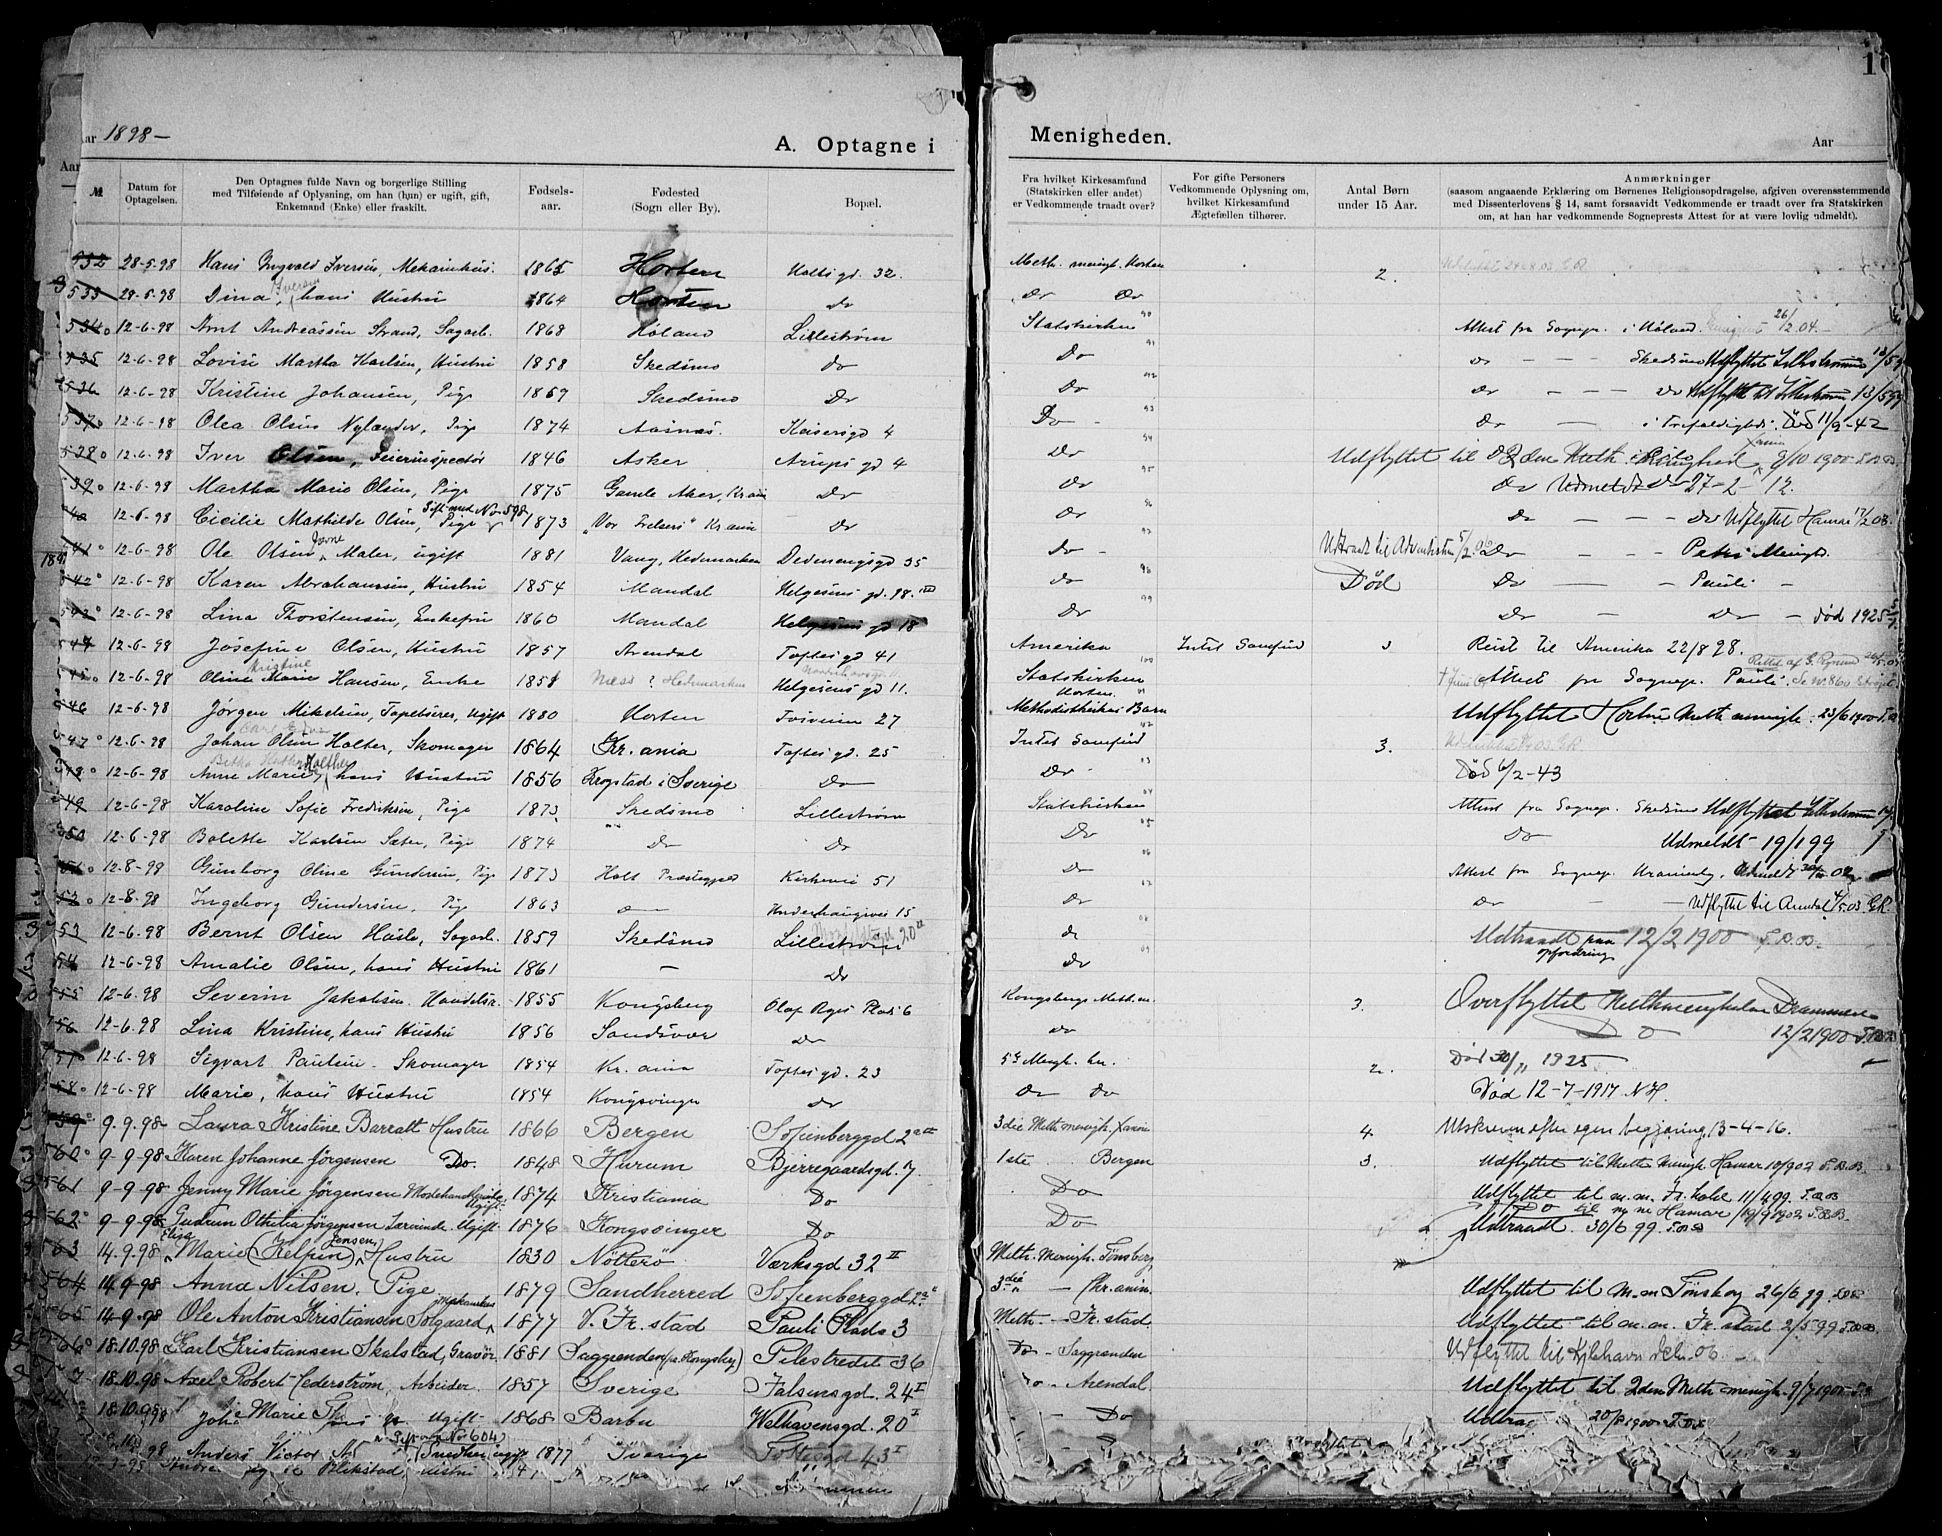 Aar 1898 —
A. Optagne i
Menigheden.
Aar
1
Aar
№
Datum for Optagelsen.
Den Optagnes fulde Navn og borgerlige Stilling
med Tilføiende af Oplysning, om han (hun) er ugift, gift,
Enkemand (Enke) eller fraskilt.
Fødsels-
aar.
Fødested
(Sogn eller By).
Bopæl.
Fra hvilket Kirkesamfund
(Statskirken eller andet)
er Vedkommende traadt over?
For gifte Personers
Vedkommende Oplysning om,
hvilket Kirkesamfund
Ægtefællen tilhører.
Antal Børn
under 15 Aar.
Anmærkninger
(saasom angaaende Erklæring om Børnenes Religionsopdragelse, afgiven overensstemmende
med Dissenterlovens § 14, samt forsaavidt Vedkommende er traadt over fra Statskirken
om, at han har vedkommende Sogneprests Attest for at være lovlig udmeldt).
532 28-5-98 Hans Ingvald Iversen, Mekanikus. 1865 Horten Holtsgd. 32. Meth. menigh. Horten 2.
533 28-5-98 Dina Iversen, hans Hustru 1864 Horten Do Do Do
534 12-6-98 Arnt Andreassen Strand, Sagarb. 1868 Høland Lillestrøm Statskirken Attest fra Sognepr. i Høland. 26/12.04.
535 12-6-98 Lovise Martha Karlsen, Hustru 1858 Skedsmo Do Do Do — — Skedsmo Udflyttet Lillestrømmen
536 12-6-98 Kristine Johansen, Pige 1869 Skedsmo Do Do Do — — Do Udflyttet til Lillestrømmen 13/5 99
537 12-6-98 Olea Olsen Nylander, Pige 1874 Aasnæs. Keisersgd 4 Do Do — i Trefoldigheds. Død 11/2-42
538 12-6-98 Iver Olsen, Feierinspectør 1846 Asker Arupsgd 4 Do Udflyttet til 2den Meth. menighed 9/10 1900 T.B.B.
539 12-6-98 Martha Marie Olsen, Pige 1875 Gamle Aker, Krania Do Do Do Udmeldt 27-2-12.
540 12-6-98 Cicilie Mathilde Olsen, Pige Gift med No 598 1873 "Vor Frelsers" Krania Do Do Do — — Do Udflyttet Hamar 1/2 03.
541 12-6-98 Ole Olsen Maler, ugift 1881 Vang, Hedemarken Dedeningsgd 35 Do Udtraadt til Adventisten Do — Petri Menigh.
542 12-6-98 Karen Abrahamsen, Hustru 1854 Mandal Helgesens gd. 98. III Do Død Do — Pauli —
543 12-6-98 Lina Thorstensen, Enkefru 1860 Mandal Helgesens gd 18 Do Do — Do — død 1925
544 12-6-98 Josefine Olsen, Hustru 1857 Arendal Toftesgd 41 Amerika Intet Samfund Reist til Amerika 22/8 98.
545 12-6-98 Oline Marie Kristine Hansen, Enke 1851 Næss? Hedemarken Helgesens gd 11. Statskirken Attest fra Sognepr. Pauli. Se No 860
546 12-6-98 Jørgen Mikelsen, Tapetserer, Ugift 1880 Horten 27 Horten. Methodistkirkens Barn Udflyttet Horten Meth. menigh. 23/6 1900 T.B.B.
547 12-6-98 Johan Olsen Holter, Skomager 1864 Kr.ania Toftesgd. 25 Intet Samfund 3.
548 12-6-98 Anne Marie, hans Hustru 1856 Krogstad i Sverige Do Do Død 6/2-43
549 12-6-98 Karoline Sofie Fredriksen, Pige 1873 Skedsmo Lillestrøm Statskirken Attest fra Sognepr. Skedsmo Udflyttet Lillestrømmen
550 12-6-98 Bolette Karlsen Sæter, Pige 1874 Do Do Do Do Udmeldt 19/1 99
551 12-8-98 Gunborg Oline Gundersen, Pige 1873 Holt Præstegjeld Kirkevei 51 Do Attest fra Sognepr. Uranienbg.
552 12-8-98 Ingeborg Gundersen, Pige 1863 Do Underhaugsvei 15 Do Do — Udflyttet til Arendal 4/5.03. GR.
553 12-6-98 Bernt Olsen Hasle, Sagarb. 1859 Skedsmo Lillestrøm Do Udtraadt paa opfordring 12/2 1900 T.B.B.
554 12-6-98 Amalie Olsen, hans Hustru 1861 — Do Do
555 12-6-98 Severin Jakobsen. Handelsr. 1855 Kongsberg Olaf Ryes Plads 6 Kongsbergs Meth.m. 3. Overflyttet Methmenigheden Drammen
556 12-6-98 Lina Kristine, hans Hustru 1856 Sandsvær Do Do Do 12/2 1900 T.B.B.
557 12-6-98 Sigvart Paulsen. Skomager 1854 Kr. ania Toftesgd. 23 5te Menigh. her. 2. Død 30/11 1925
558 12-6-98 Marie, hans Hustru 1854 Kongsvinger Do Do Do Død 12-7-1917 N.H.
559 9.9.98 Laura Kristine Barratt Hustru 1866 Bergen Sofienberggd. 2 3die Meth menigh. Krania 4. Utskreven efter egen begjæring 13-4-16.
560 9-9-98 Karen Johanne Jørgensen Do. 1848 Hurum Bjerregaardsgd. 7. 1ste Bergen 3. Udflyttet til Meth Menigh Hamar 10/9 02 T.B.B.
561 9-9-98 Jenny Marie Jørgensen Ugift 1874 Kristiania Do Do Udflyttet til m.m. Fr.hald 11/4 99. T.B.B.
562 9-9-98 Gudrun Othilia Jørgensen Lærerinde Ugift 1876 Kongsvinger Do Do Do til m.m Hamar 10/9 1902 T.B.B.
563 14.9.98 Elisa Marie (Kelpin) Jensen, Hustru 1830 Nötterö Værksgd 32 II Meth. Menigh. Tønsberg, Udtraadt. 30/6 99. T.B.B
564 14.9.98 Anna Nilsen. Pige 1879 Sandherred Sofienberggd. 2 3die — Kr.ania. Udflyttet til M.m Tønsberg 26/6 99.
565 14.9.98 Ole Anton Kristiansen Solgaard 1877 V. Fr.stad Pauli Plads 3 Meth. — Fr.stad. Udflyttet til m.m. Fr.stad 2/5 99 T.B.B.
566 18.10.98 Karl Kristiansen Skalstad, Gravør 1881 Saggrenden (v. Kongsbg) Pilestrædet 36 Do — Saggrenden Udflyttet til Kjøbhavn 06.
7 18.10.98 Axel Robert Cederström, Arbeider. 1857 Sverige Falsensgd. 24 I Do — Arendal Udflyttet til 2den Meth menigh. 9/7 1900
18.10.98 Marie Ugift 1868 Barbu Welhavensgd. 20 I — Do 20/8 1900 T.B.B
98 Anders Victor Snedker ugift (Gift med No 604) 1877 Sverige Toftesgd 43 I
Blikstad,